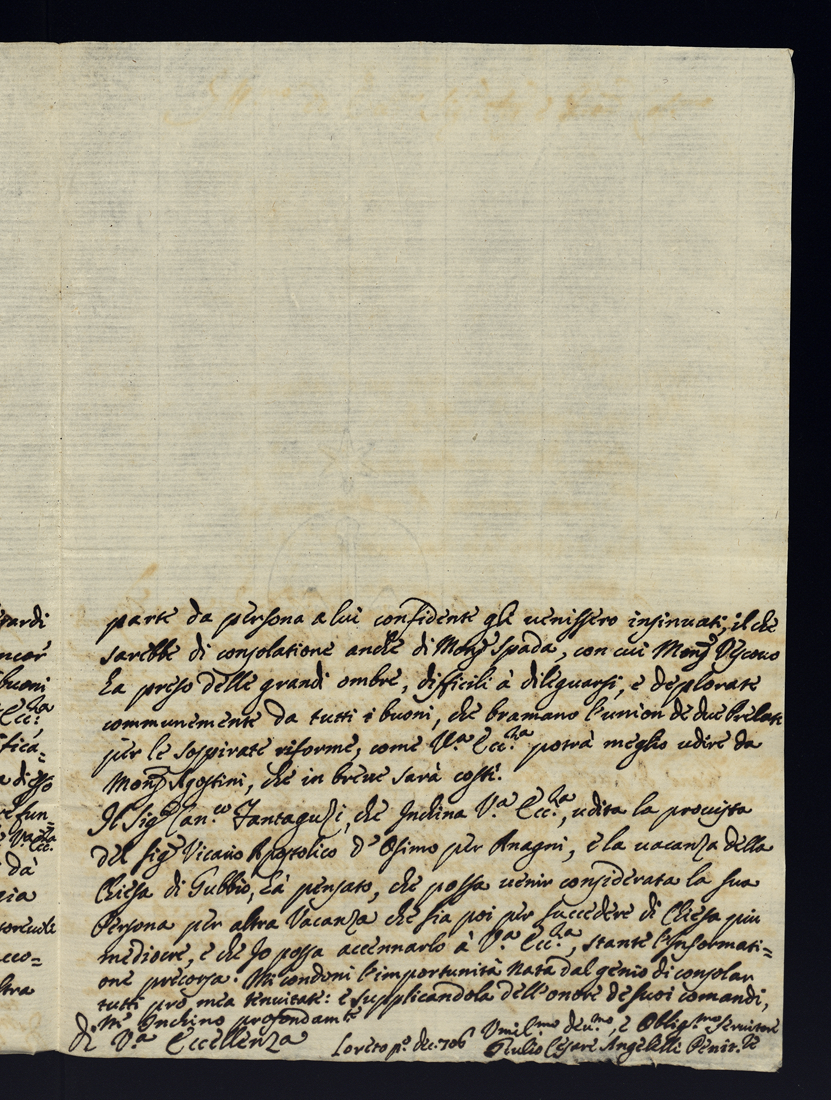 parte da persona a lui confidente gli venissero insinuati; il che
sarebbe di consolatione anche di Mons.r Spada, con cui Mons.r Vescovo
hà preso delle grandi ombre, difficili à dileguarsi, e deplorate
communemente da tutti i buoni, che bramano l'union de due Prelati
per le sospirate riforme, come V.a Ecc.za potrà meglio udire da
Mons.r Agostini, che in breve sarà costì.
Il Sig.r Can.co Fantaguzi, che Inchina V.a Ecc.za, udita la provista
del sig.r Vicario Apostolico d'Osimo per Anagni, e la vacanza della
Chiesa di Gubbio, hà pensato, che possa venir considerata la sua
Persona per altra Vacanza che sia poi per succedere di Chiesa più
mediocre, e che Io possa accennarlo à V.a Ecc.za, stante l'Informati=
one precorsa. Mi condoni l'importunità nata dal genio di consolar
tutti pro mea tenuitate: e supplicandola dell'onore de suoi comandi,
m'Inchino profondam.te
di V.a Eccellenza
Loreto p.o Dec. 706
Umil.mo dev.mo, e Oblig.mo servitore
Giulio Cesare Angelelli Penit.re
tardi
ancor
buoni
Ecc.za
fica=
a di esso
e fun=
V.a Ecc.za
dà
cco=
ltra